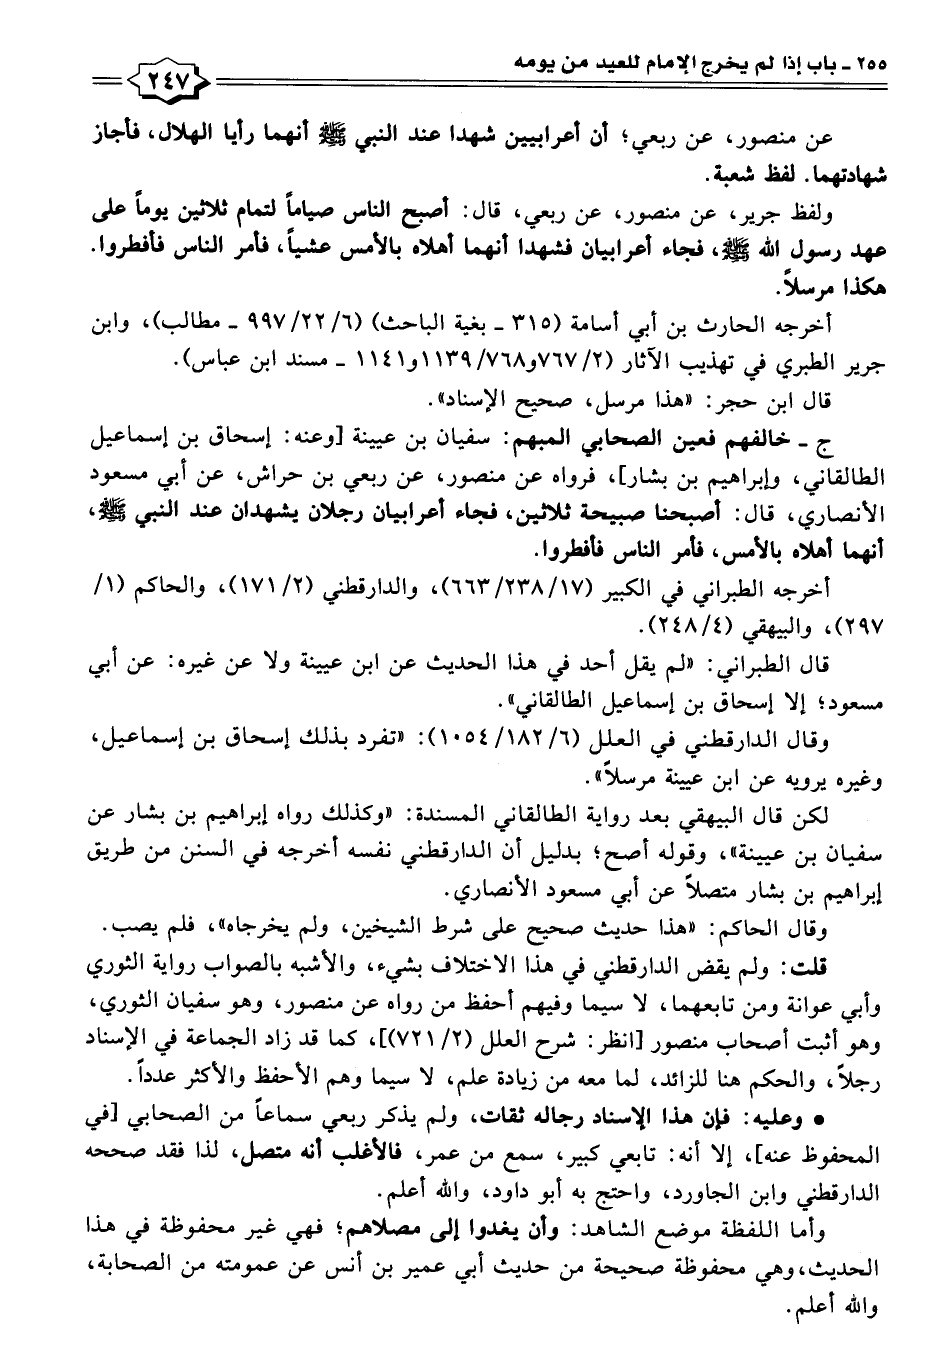 ٢٥٥ - باب إذا لم يخرج الإمام للعيد من يومه
٢٤٧
عن منصور، عن ربعي؛ أن أعرابيين شهدا عند النبي ﷺ أنهما رأيا الهلال، فأجاز
شهادتهما. لفظ شعبة.
ولفظ جرير، عن منصور، عن ربعي، قال: أصبح الناس صياماً لتمام ثلاثين يوماً على
عهد رسول الله ﷺ، فجاء أعرابيان فشهدا أنهما أهلاه بالأمس عشياً، فأمر الناس فأفطروا.
هكذا مرسلاً.
أخرجه الحارث بن أبي أسامة (٣١٥ - بغية الباحث) (٩٩٧/٢٢/٦ - مطالب)، وابن
جرير الطبري في تهذيب الآثار (٧٦٧/٢و٧٦٨/ ١١٣٩و١١٤١ - مسند ابن عباس).
قال ابن حجر: «هذا مرسل، صحيح الإسناد».
ج - خالفهم فعين الصحابي المبهم: سفيان بن عيينة [وعنه: إسحاق بن إسماعيل
الطالقاني، وإبراهيم بن بشار]، فرواه عن منصور، عن ربعي بن حراش، عن أبي مسعود
الأنصاري، قال: أصبحنا صبيحة ثلاثين، فجاء أعرابيان رجلان يشهدان عند النبي ﷺ،
أنهما أهلاه بالأمس، فأمر الناس فأفطروا.
أخرجه الطبراني في الكبير (٦٦٣/٢٣٨/١٧)، والدارقطني (١٧١/٢)، والحاكم (١/
٢٩٧)، والبيهقي (٢٤٨/٤).
قال الطبراني: «لم يقل أحد في هذا الحديث عن ابن عيينة ولا عن غيره: عن أبي
مسعود؛ إلا إسحاق بن إسماعيل الطالقاني».
وقال الدارقطني في العلل (١٠٥٤/١٨٢/٦): «تفرد بذلك إسحاق بن إسماعيل،
وغيره يرويه عن ابن عيينة مرسلاً».
لكن قال البيهقي بعد رواية الطالقاني المسندة: «وكذلك رواه إبراهيم بن بشار عن
سفيان بن عيينة»، وقوله أصح؛ بدليل أن الدارقطني نفسه أخرجه في السنن من طريق
إبراهيم بن بشار متصلاً عن أبي مسعود الأنصاري.
وقال الحاكم: «هذا حديث صحيح على شرط الشيخين، ولم يخرجاه»، فلم يصب.
قلت: ولم يقض الدارقطني في هذا الاختلاف بشيء، والأشبه بالصواب رواية الثوري
وأبي عوانة ومن تابعهما، لا سيما وفيهم أحفظ من رواه عن منصور، وهو سفيان الثوري،
وهو أثبت أصحاب منصور [انظر: شرح العلل (٧٢١/٢)]، كما قد زاد الجماعة في الإسناد
رجلاً، والحكم هنا للزائد، لما معه من زيادة علم، لا سيما وهم الأحفظ والأكثر عدداً.
• وعليه: فإن هذا الإسناد رجاله ثقات، ولم يذكر ربعي سماعاً من الصحابي [في
المحفوظ عنه]، إلا أنه: تابعي كبير، سمع من عمر، فالأغلب أنه متصل، لذا فقد صححه
الدارقطني وابن الجاورد، واحتج به أبو داود، والله أعلم.
وأما اللفظة موضع الشاهد: وأن يغدوا إلى مصلاهم؛ فهي غير محفوظة في هذا
الحديث، وهي محفوظة صحيحة من حديث أبي عمير بن أنس عن عمومته من الصحابة،
والله أعلم.